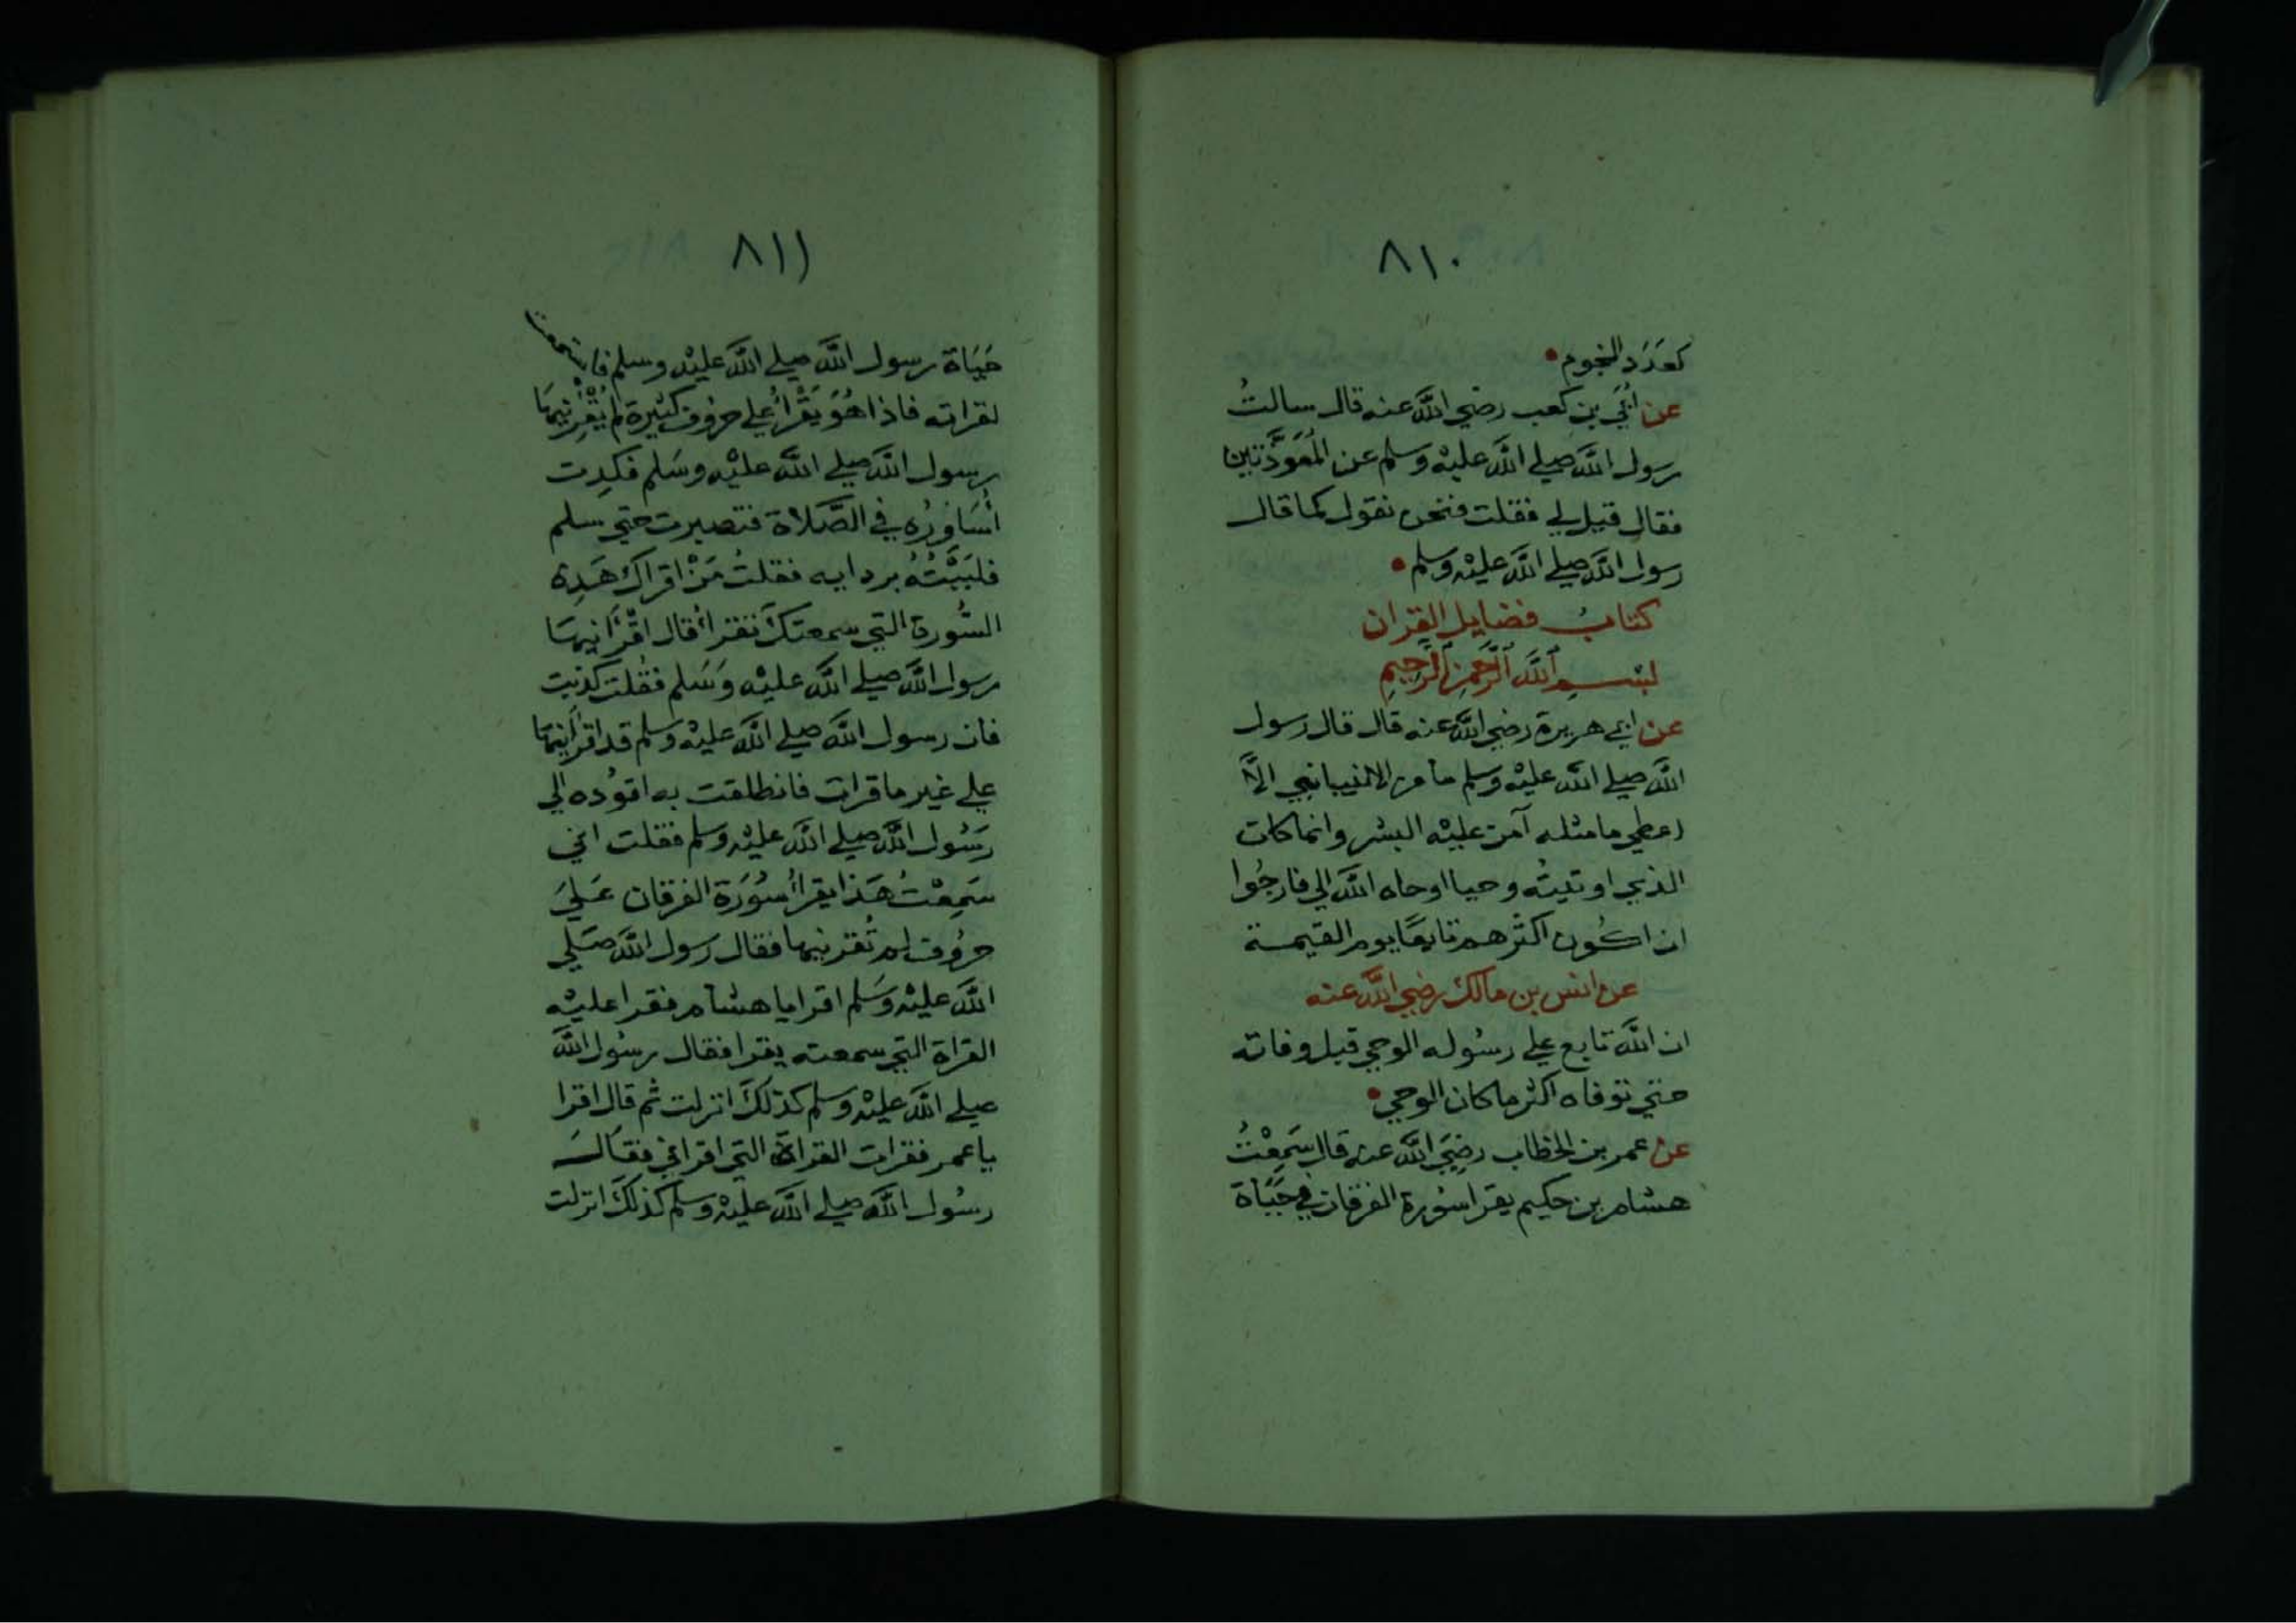 ٨١٠
كعَدَد النجوم
عن أُبَي بن كعب رضي الله عنه قال سالتُ
رسول الله صلي الله عليه وسلم عن المُعَوَّذتين
فقال قيل لي فقلت فنحن نقول كما قال
رسول الله صلي الله عليه وسلم
كتابُ فضايل القران
بسم الله الرحمن الرحيم
عن ابي هريرة رضي الله عنه قال قال رسول
الله صلي الله عليه وسلم ما من الانبيا نبي الاَّ
اعطي ما مثله آمن عليه البشر وانما كان
الذي اوتيتُه وحيا اوحاه الله الي فارجُوا
ان اكُون اكثرهم تابعًا يوم القيمة
عن انس بن مالك رضي الله عنه
ان الله تابع علي رسُوله الوحي قبل وفاته
حتي توفاه اكثر ما كان الوحي
عن عمر بن الخطاب رضِيَ الله عنه قال سَمِعْتُ
هشام بن حكيم يقرا سُورة الفرقان في حَيَاة
٨١١
حَيَاة رسول الله صلي الله عليه وسلم فاستمعت
لقراته فاذا هُوَ يَقْرَأُ علي حروف كثيرة لم يُقْرِئنيهَا
رسول الله صلي الله عليه وسَلم فكِدت
أُسَاوِرُه في الصَّلاة فتصبرت حتي سلم
فلبَبَّتُهُ بردايه فقلتُ مَنْ اقراك هَذِه
السُّورة التي سمعتك تقرأُ قال اقْرَأنيهَا
رسول الله صلي الله عليه وَسَلم فقُلت كذبت
فان رسول الله صلي الله عليه وسلم قد اقرأنيها
علي غير ما قرات فانطلقت به اقوُده الي
رَسُول الله صلي الله عليه وسلم فقلت اني
سَمِعْتُ هَذا يقرأُ سُوُرَة الفرقان عَلَيَ
حرُوف لم تُقرِئنيها فقال رسول الله صَلي
الله عليه وَسَلم اقرا يا هشام فقرا عليه
القراة التي سمعته يقرا فقال رسُول الله
صلي الله عليه وسلم كذلكَ انزلت ثم قال اقرا
يا عمر فقرات القراة التي اقراني فقَالَ
رسُول الله صلي الله عليه وسلم كذلكَ انزلت